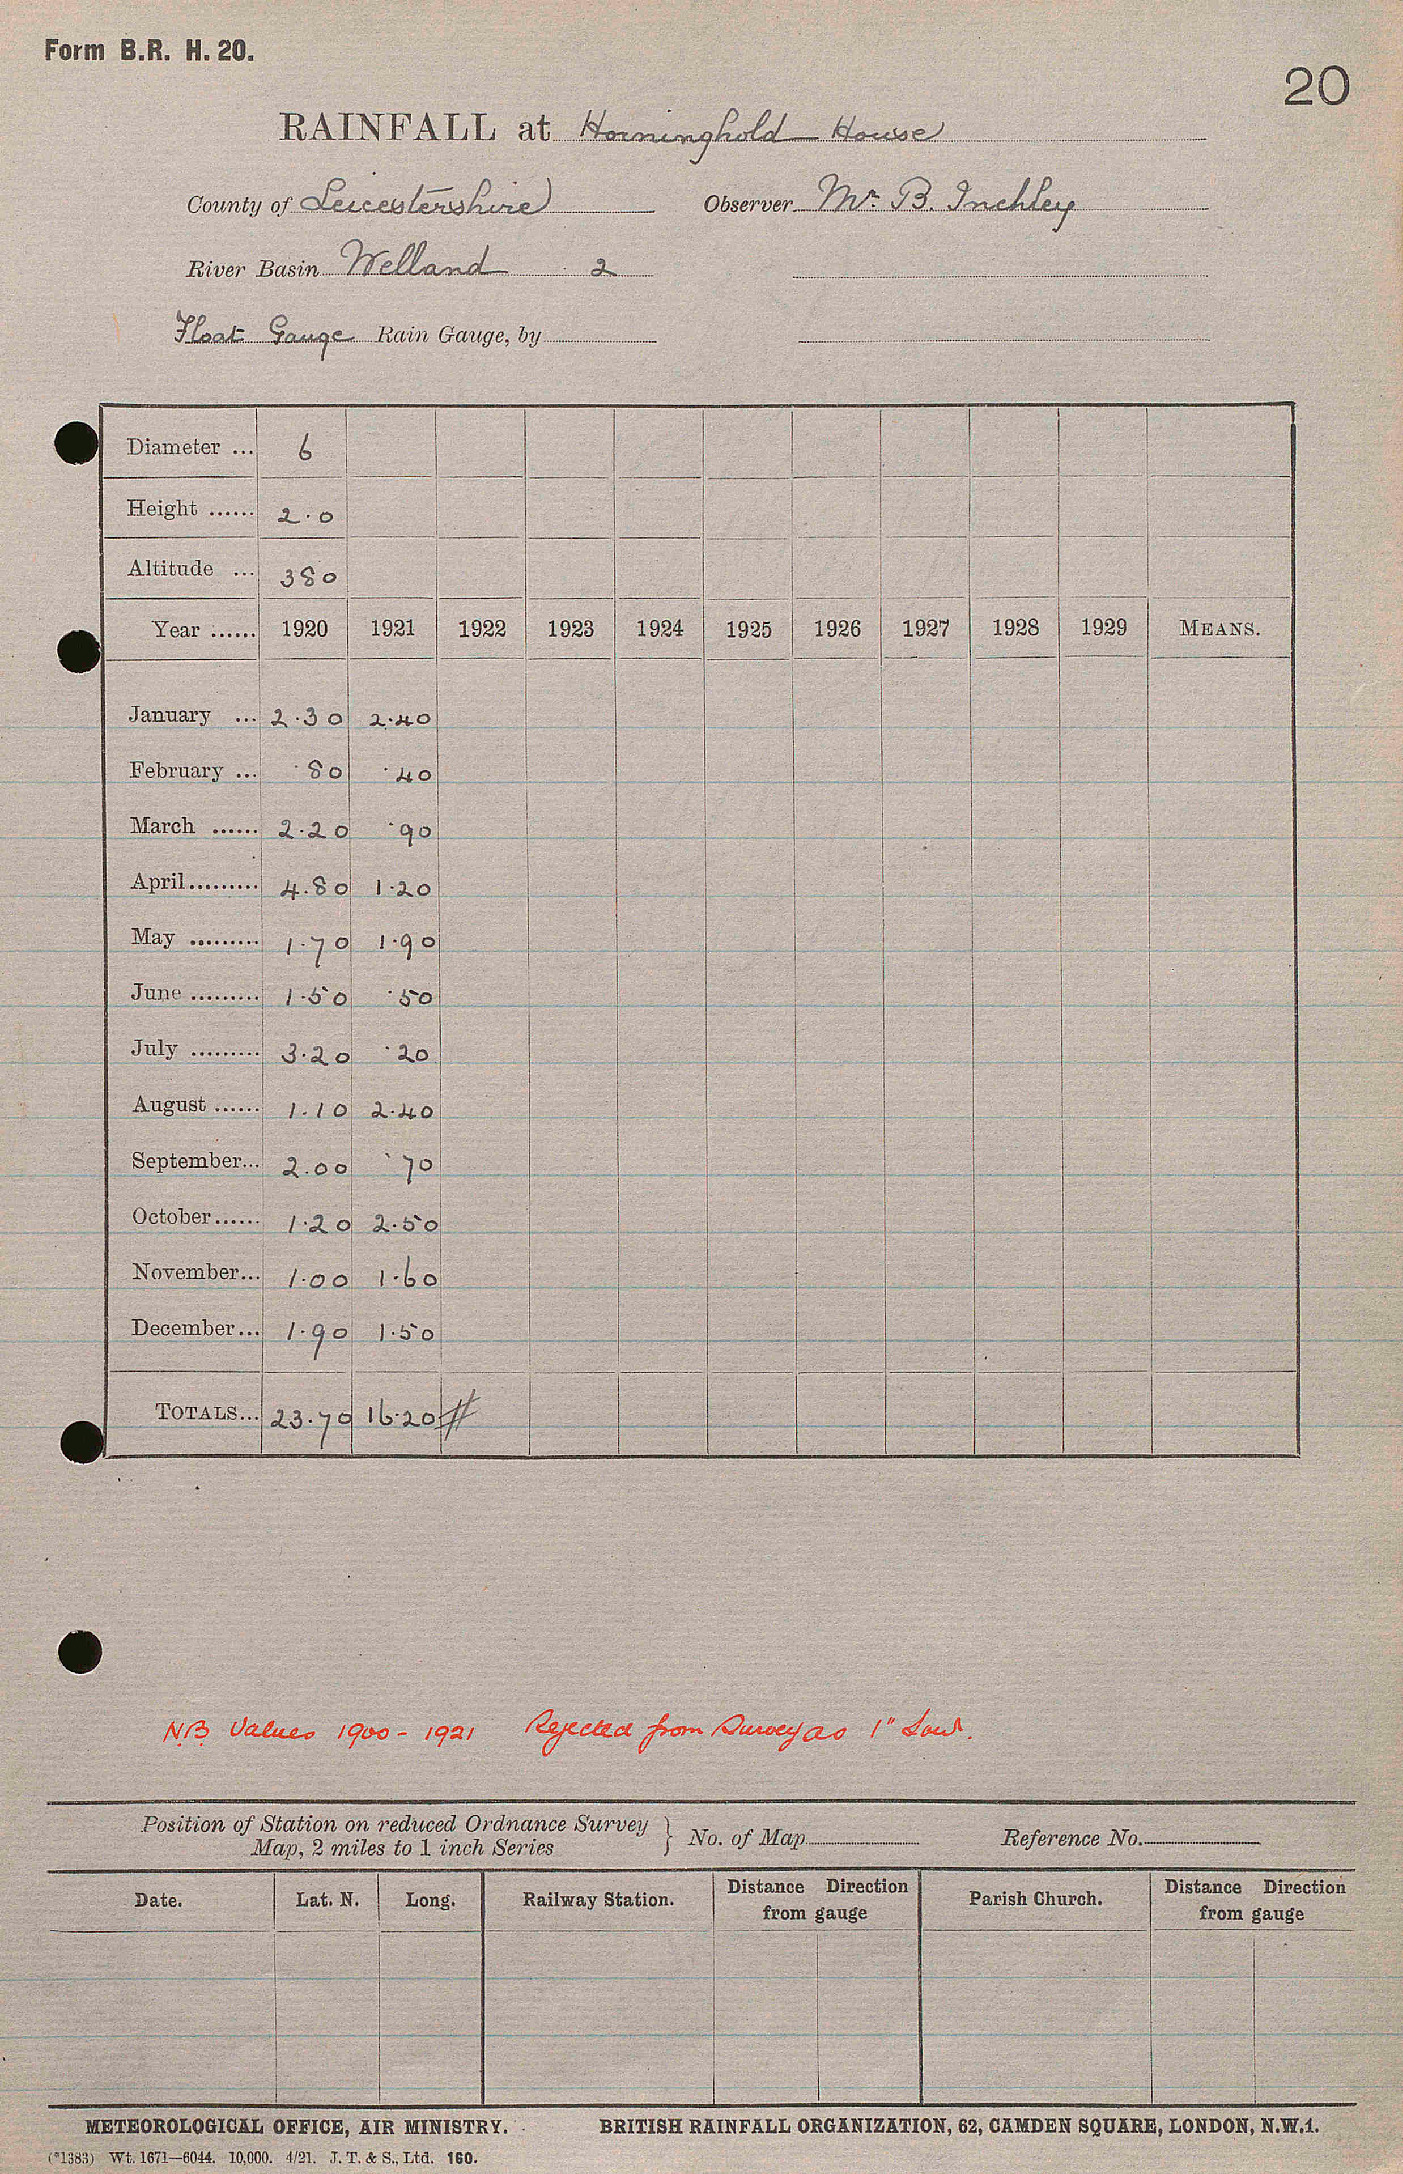 Form B.R. H. 20.
20
RAINFALL at Horninghold House
County of Leicestershire Observer Mr. B. Inchley
River Basin Welland 2
Float Gauge Rain Gauge, by
Diameter ... 6
Height ...... 2.0
Altitude ... 380
Year ...... 1920 1921 1922 1923 1924 1925 1926 1927 1928 1929 MEANS.
January ... 2.30 2.40
February ... .80 .40
March ...... 2.20 .90
April......... 4.80 1.20
May ......... 1.70 1.90
June ......... 1.50 .50
July ......... 3.20 .20
August ...... 1.10 2.40
September... 2.00 .70
October...... 1.20 2.50
November... 1.00 1.60
December... 1.90 1.50
TOTALS... 23.70 16.20 #
N.B. Values 1900 - 1921 Rejected from Survey as 1" Low.
Position of Station on reduced Ordnance Survey
Map, 2 miles to 1 inch Series } No. of Map Reference No.
Date. Lat. N. Long. Railway Station. Distance Direction from gauge Parish Church. Distance Direction from gauge
METEOROLOGICAL OFFICE, AIR MINISTRY. BRITISH RAINFALL ORGANIZATION, 62, CAMDEN SQUARE, LONDON, N.W.1.
(*1383) Wt. 1671—6044. 10,000. 4/21. J. T. & S., Ltd. 160.